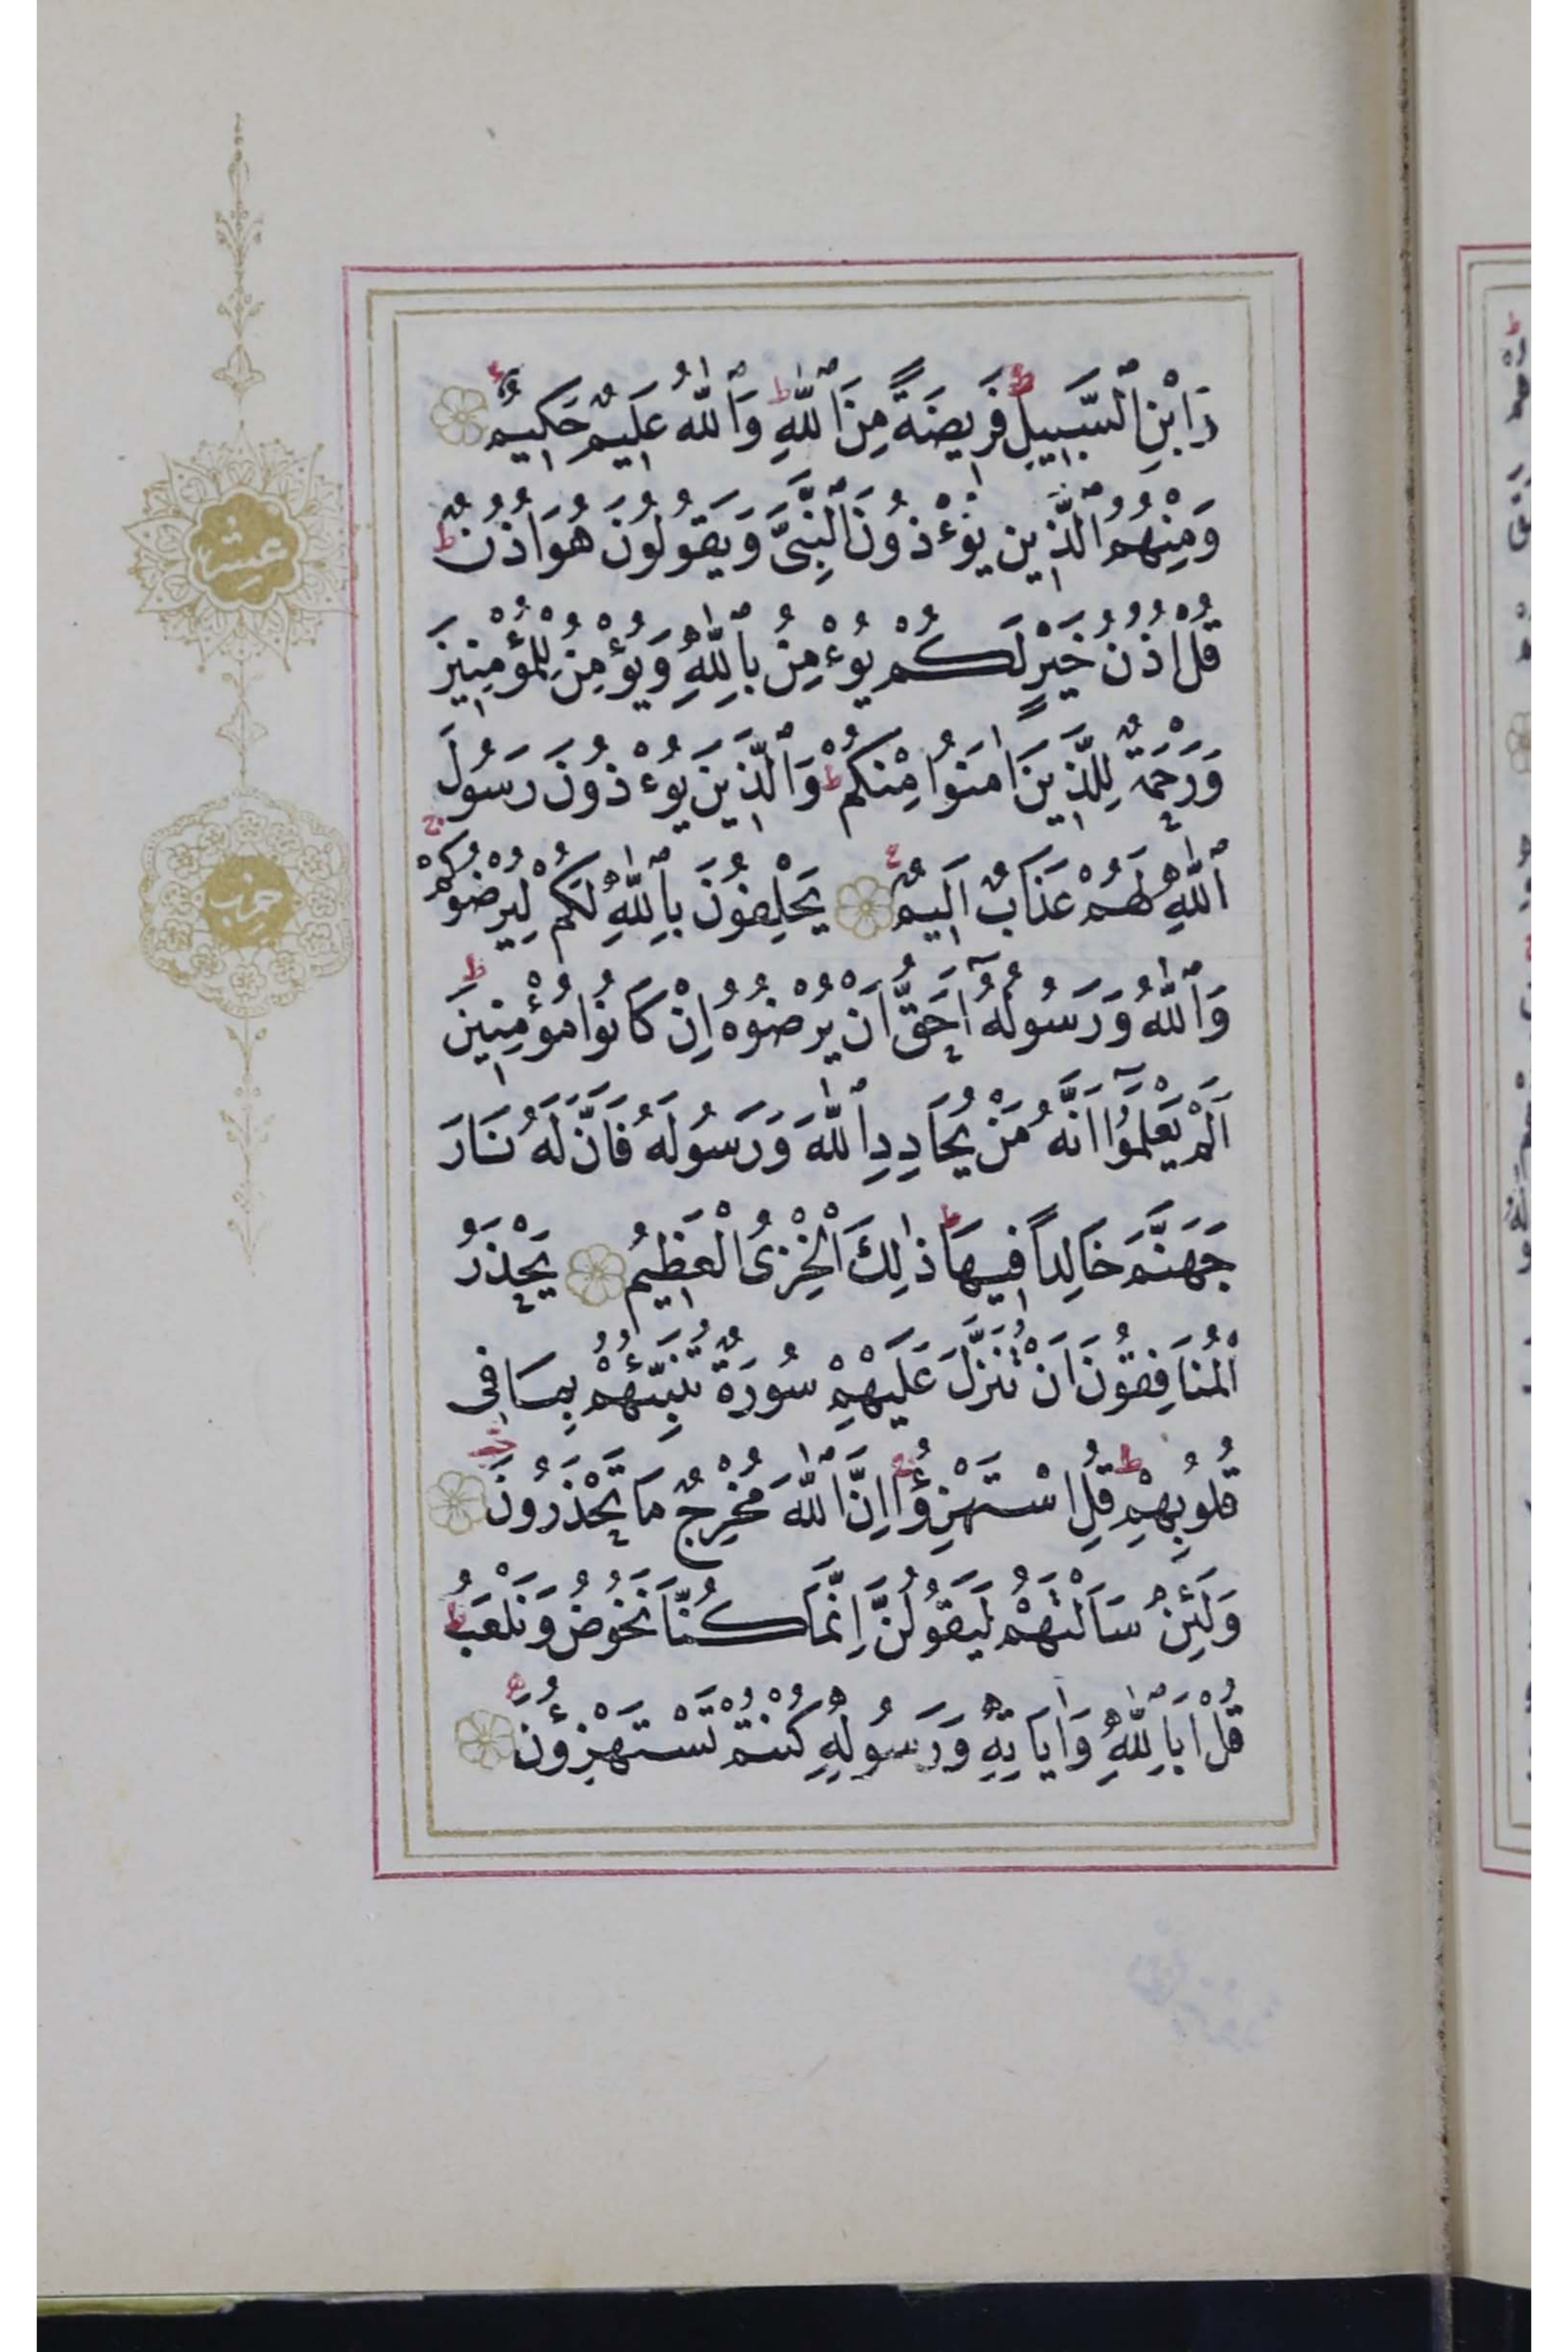 وَابْنِ ٱلسَّبِيلِ ط فَرِيضَةً مِنَ ٱللّٰهِ ط وَٱللّٰهُ عَلِيمٌ حَكِيمٌ
وَمِنْهُمُ ٱلَّذِينَ يُؤْذُونَ ٱلنَّبِىَّ وَيَقُولُونَ هُوَ اُذُنٌ ط
قُلْ اُذُنُ خَيْرٍ لَكُمْ يُؤْمِنُ بِٱللّٰهِ وَيُؤْمِنُ لِلْمُؤْمِنِينَ
وَرَحْمَةٌ لِلَّذِينَ اٰمَنُوا مِنْكُمْ ط وَٱلَّذِينَ يُؤْذُونَ رَسُولَ
ٱللّٰهِ لَهُمْ عَذَابٌ اَلِيمٌ يَحْلِفُونَ بِٱللّٰهِ لَكُمْ لِيُرْضُوكُمْ ج
وَٱللّٰهُ وَرَسُولُهُٓ اَحَقُّ اَنْ يُرْضُوهُ اِنْ كَانُوا مُؤْمِنِينَ
اَلَمْ يَعْلَمُٓوا اَنَّهُ مَنْ يُحَادِدِ ٱللّٰهَ وَرَسُولَهُ فَاَنَّ لَهُ نَارَ
جَهَنَّمَ خَالِداً فِيهَا ط ذٰلِكَ الْخِزْىُ الْعَظِيمُ يَحْذَرُ
الْمُنَافِقُونَ اَنْ تُنَزَّلَ عَلَيْهِمْ سُورَةٌ تُنَبِّئُهُمْ بِمَا فِى
قُلُوبِهِمْ ط قُلِ اسْتَهْزِؤُا ج اِنَّ ٱللّٰهَ مُخْرِجٌ مَا تَحْذَرُونَ
وَلَئِنْ سَاَلْتَهُمْ لَيَقُولُنَّ اِنَّمَا كُنَّا نَخُوضُ وَنَلْعَبُ ط
قُلْ اَبِٱللّٰهِ وَاٰيَاتِهِ وَرَسُولِهِ كُنْتُمْ تَسْتَهْزِؤُنَ
عشر
حزب